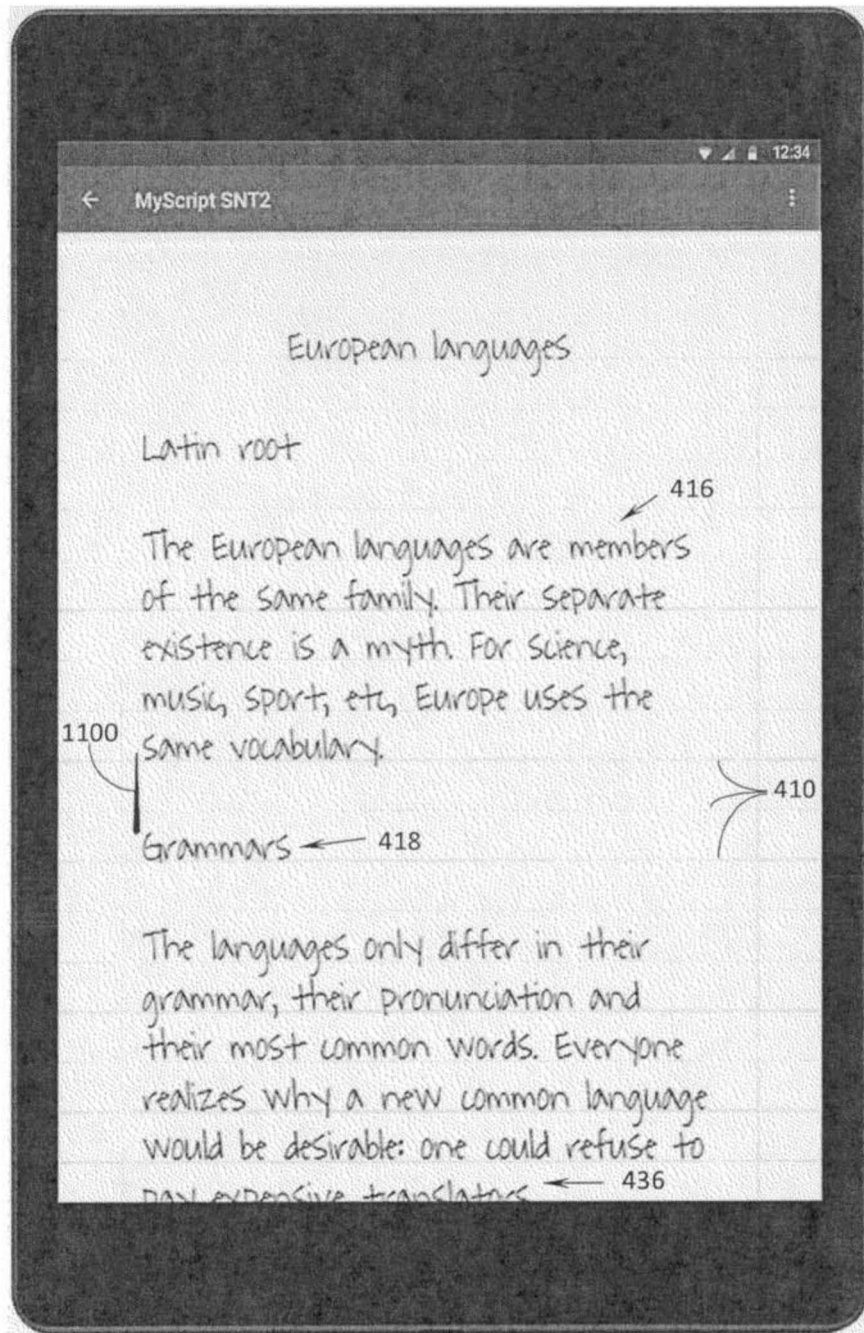 12:34
MyScript SNT2
European languages
Latin root
416
The European languages are members
of the same family. Their separate
existence is a myth. For science,
music, sport, etc, Europe uses the
1100
same vocabulary.
410
Grammars
418
The languages only differ in their
grammar, their pronunciation and
their most common words. Everyone
realizes why a new common language
would be desirable: one could refuse to
436
pay expensive translators